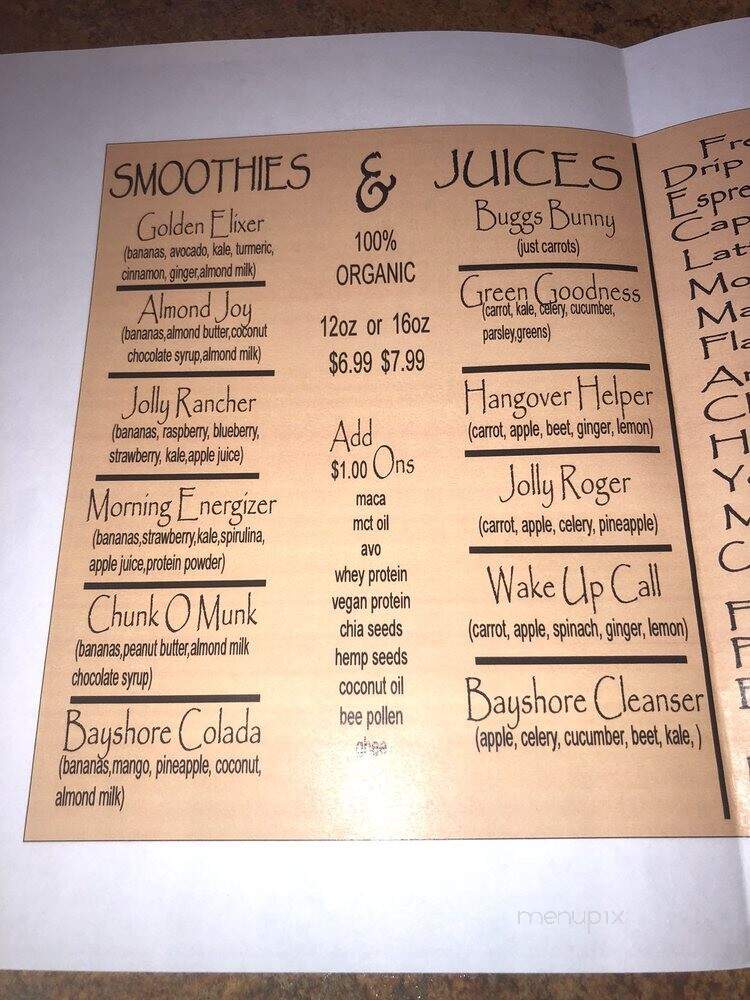 SMOOTHIES & JUICES
Golden Elixer
(bananas, avocado, kale, turmeric,
cinnamon, ginger,almond milk)
Almond Joy
(bananas,almond butter,coconut
chocolate syrup,almond milk)
Jolly Rancher
(bananas, raspberry, blueberry,
strawberry, kale,apple juice)
Morning Energizer
(bananas,strawberry,kale,spirulina,
apple juice,protein powder)
Chunk O Munk
(bananas,peanut butter,almond milk
chocolate syrup)
Bayshore Colada
(bananas,mango, pineapple, coconut,
almond milk)
100%
ORGANIC
12oz or 16oz
$6.99 $7.99
Add
$1.00 Ons
maca
mct oil
avo
whey protein
vegan protein
chia seeds
hemp seeds
coconut oil
bee pollen
ghee
Buggs Bunny
(just carrots)
Green Goodness
(carrot, kale, celery, cucumber,
parsley,greens)
Hangover Helper
(carrot, apple, beet, ginger, lemon)
Jolly Roger
(carrot, apple, celery, pineapple)
Wake Up Call
(carrot, apple, spinach, ginger, lemon)
Bayshore Cleanser
(apple, celery, cucumber, beet, kale, )
Drip
menupix